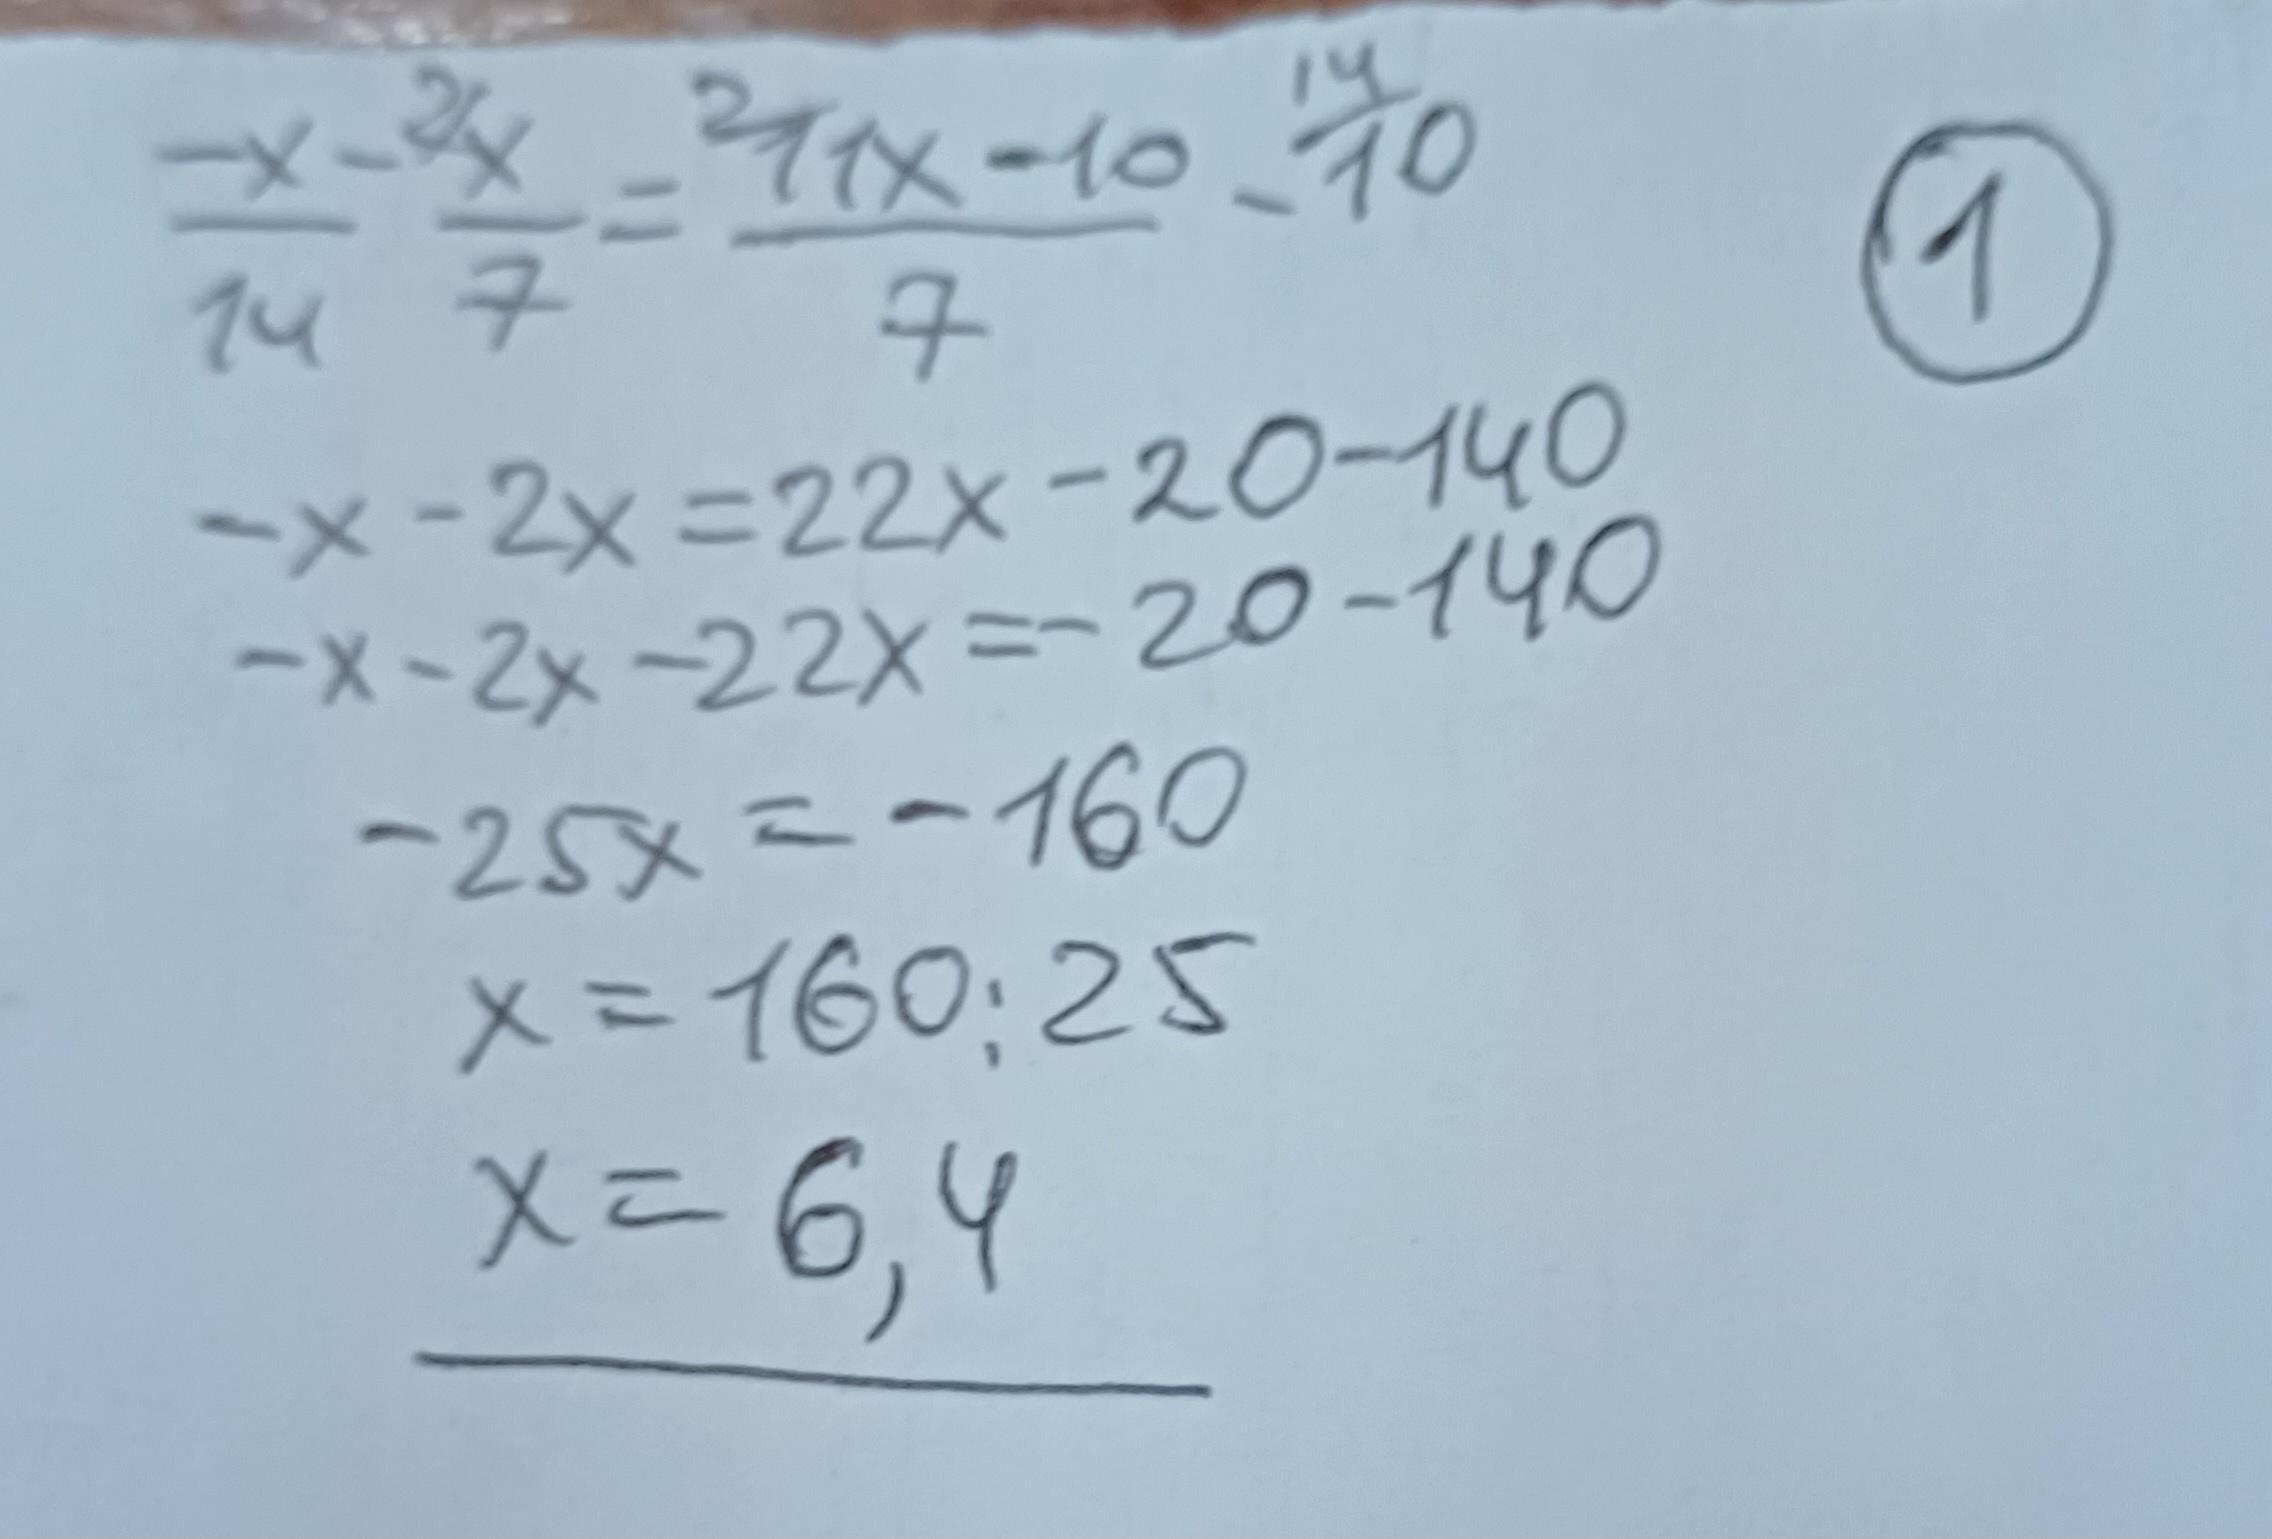 -x/14 - ²x/7 = ²(11x - 10)/7 - ¹⁴10
1
-x - 2x = 22x - 20 - 140
-x - 2x - 22x = - 20 - 140
-25x = - 160
x = 160 : 25
x = 6,4